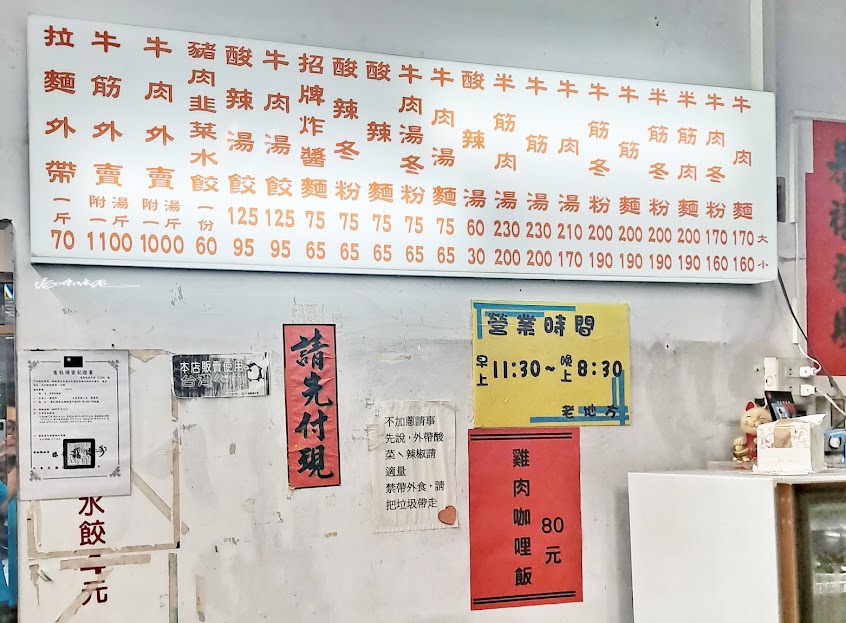 大 小
牛肉麵 170 160
牛肉冬粉 170 160
半筋肉麵 200 190
半筋冬粉 200 190
牛筋麵 200 190
牛筋冬粉 200 190
牛肉湯 210 170
牛筋湯 230 200
半筋肉湯 230 200
酸辣湯 60 30
牛肉湯麵 75 65
牛肉湯冬粉 75 65
酸辣麵 75 65
酸辣冬粉 75 65
招牌炸醬麵 75 65
牛肉湯餃 125 95
酸辣湯餃 125 95
豬肉韭菜水餃 一份 60
牛肉外賣 附湯一斤 1000
牛筋外賣 附湯一斤 1100
拉麵外帶 一斤 70
畜牧場登記證書
本店販賣使用
台灣
請先付現
不加蔥請事
先說，外帶酸
菜、辣椒請
適量
禁帶外食，請
把垃圾帶走
營業時間
早上11:30~晚上8:30
老地方
雞肉咖哩飯
80元
水餃
元